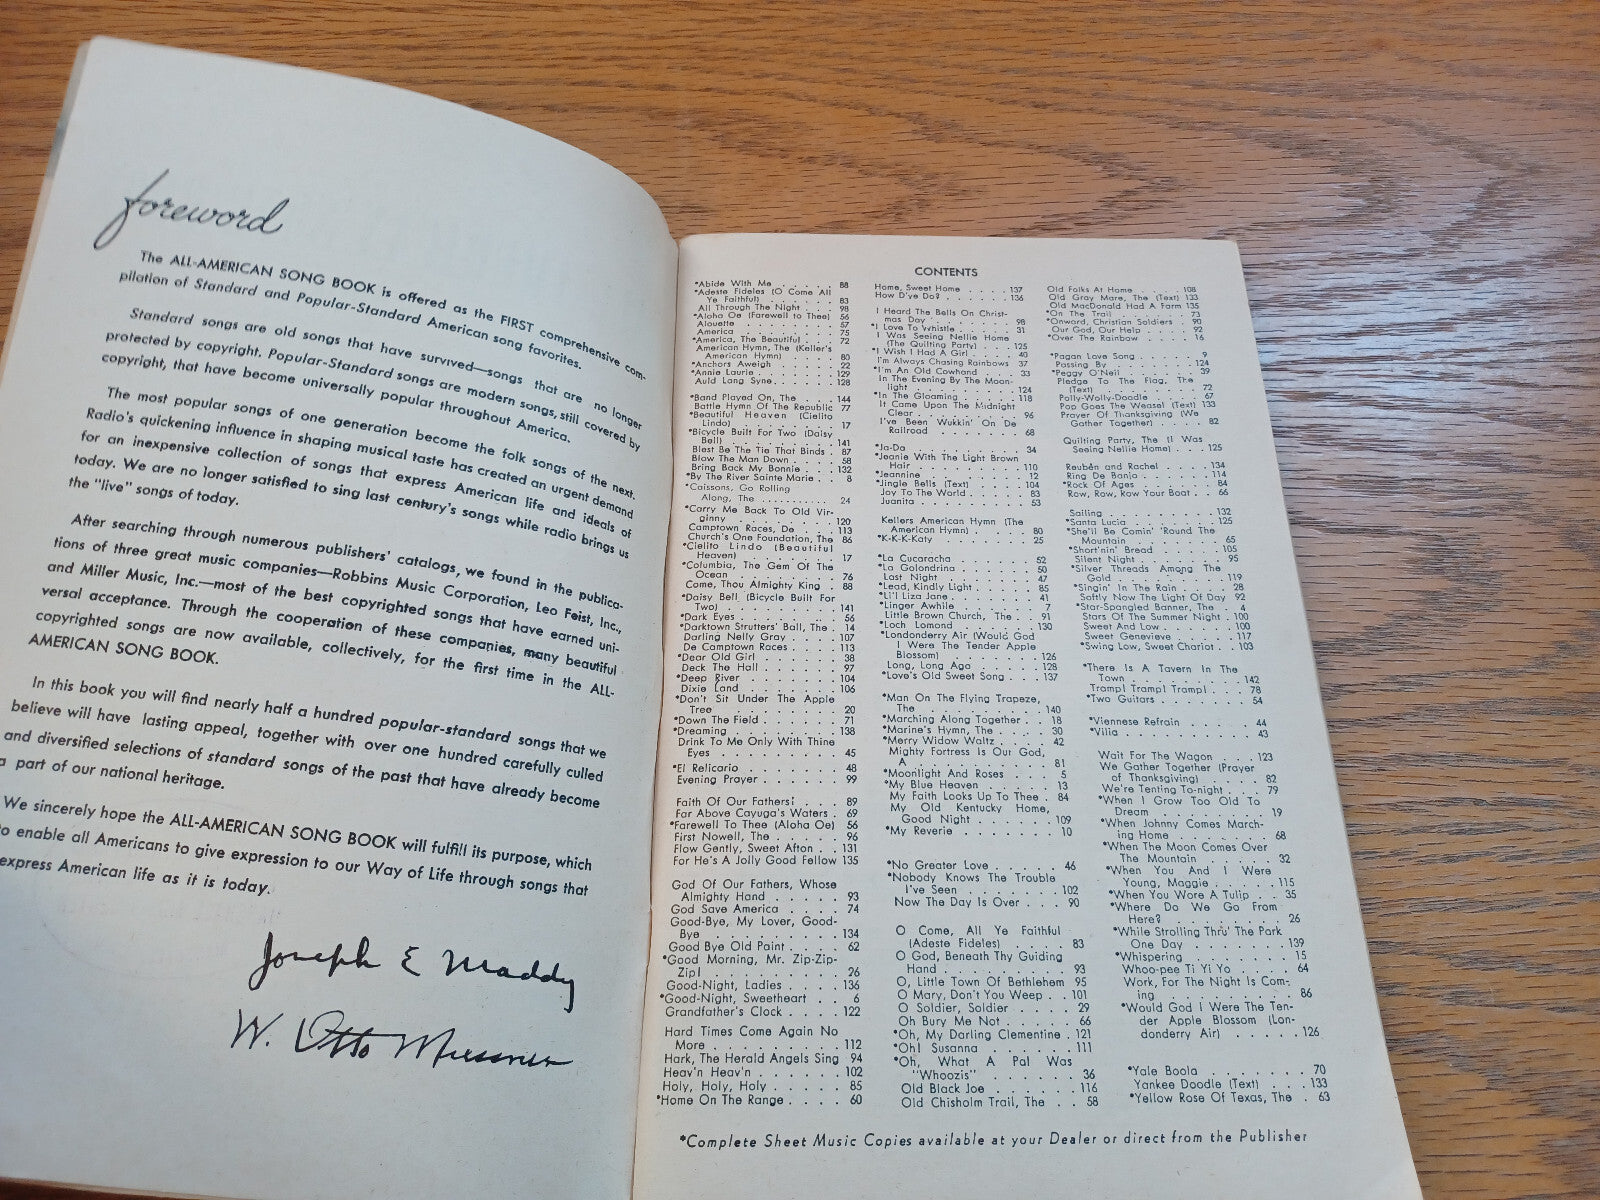 foreword
The ALL-AMERICAN SONG BOOK is offered as the FIRST comprehensive com-
pilation of Standard and Popular-Standard American song favorites.
Standard songs are old songs that have survived—songs that are no longer
protected by copyright. Popular-Standard songs are modern songs, still covered by
copyright, that have become universally popular throughout America.
The most popular songs of one generation become the folk songs of the next.
Radio's quickening influence in shaping musical taste has created an urgent demand
for an inexpensive collection of songs that express American life and ideals of
today. We are no longer satisfied to sing last century's songs while radio brings us
the "live" songs of today.
After searching through numerous publishers' catalogs, we found in the publica-
tions of three great music companies—Robbins Music Corporation, Leo Feist, Inc.,
and Miller Music, Inc.—most of the best copyrighted songs that have earned uni-
versal acceptance. Through the cooperation of these companies, many beautiful
copyrighted songs are now available, collectively, for the first time in the ALL-
AMERICAN SONG BOOK.
In this book you will find nearly half a hundred popular-standard songs that we
believe will have lasting appeal, together with over one hundred carefully culled
and diversified selections of standard songs of the past that have already become
a part of our national heritage.
We sincerely hope the ALL-AMERICAN SONG BOOK will fulfill its purpose, which
to enable all Americans to give expression to our Way of Life through songs that
express American life as it is today.
Joseph E Maddy
W. Otto Miessner
CONTENTS
*Abide With Me . . . . . 88
*Adeste Fideles (O Come All
Ye Faithful) . . . . . 83
All Through The Night . . . 98
*Aloha Oe (Farewell to Thee) 56
Alouette . . . . . 57
America . . . . . 75
*America, The Beautiful . . . 72
American Hymn, The (Keller's
American Hymn) . . . . 80
*Anchors Aweigh . . . . 22
*Annie Laurie . . . . . 129
Auld Lang Syne . . . . . 128
*Band Played On, The . . . 144
Battle Hymn Of The Republic 77
*Beautiful Heaven (Cielito
Lindo) . . . . . 17
*Bicycle Built For Two (Daisy
Bell) . . . . . 141
Blest Be The Tie That Binds . 87
Blow The Man Down . . . . 58
Bring Back My Bonnie . . . 132
*By The River Sainte Marie . . 8
*Caissons, Go Rolling
Along, The . . . . . 24
*Carry Me Back To Old Vir-
ginny . . . . . 120
Camptown Races, De . . . 113
Church's One Foundation, The 86
*Cielito Lindo (Beautiful
Heaven) . . . . . 17
*Columbia, The Gem Of The
Ocean . . . . . 76
Come, Thou Almighty King . 88
*Daisy Bell (Bicycle Built For
Two) . . . . . 141
*Dark Eyes . . . . . 56
*Darktown Strutters' Ball, The . 14
Darling Nelly Gray . . . . 107
De Camptown Races . . . . 113
*Dear Old Girl . . . . . 38
Deck The Hall . . . . . 97
*Deep River . . . . . 104
Dixie Land . . . . . 106
*Don't Sit Under The Apple
Tree . . . . . 20
*Down The Field . . . . . 71
*Dreaming . . . . . 138
Drink To Me Only With Thine
Eyes . . . . . 45
*El Relicario . . . . . 48
Evening Prayer . . . . . 99
Faith Of Our Fathers! . . . 89
Far Above Cayuga's Waters . 69
*Farewell To Thee (Aloha Oe) 56
First Nowell, The . . . . 96
Flow Gently, Sweet Afton . . 131
For He's A Jolly Good Fellow 135
God Of Our Fathers, Whose
Almighty Hand . . . . 93
God Save America . . . . 74
Good-Bye, My Lover, Good-
Bye . . . . . 134
Good Bye Old Paint . . . . 62
*Good Morning, Mr. Zip-Zip-
Zip! . . . . . 26
Good-Night, Ladies . . . . 136
*Good-Night, Sweetheart . . 6
Grandfather's Clock . . . . 122
Hard Times Come Again No
More . . . . . 112
Hark, The Herald Angels Sing 94
Heav'n Heav'n . . . . . 102
Holy, Holy, Holy . . . . . 85
*Home On The Range . . . . 60
Home, Sweet Home . . . . 137
How D'ye Do? . . . . . 136
I Heard The Bells On Christ-
mas Day . . . . . 98
*I Love To Whistle . . . . 31
I Was Seeing Nellie Home
(The Quilting Party) . . . 125
*I Wish I Had A Girl . . . . 40
I'm Always Chasing Rainbows 37
*I'm An Old Cowhand . . . 33
In The Evening By The Moon-
light . . . . . 124
*In The Gloaming . . . . . 118
It Came Upon The Midnight
Clear . . . . . 96
I've Been Wukkin' On De
Railroad . . . . . 68
*Ja-Da . . . . . 34
*Jeanie With The Light Brown
Hair . . . . . 110
*Jeannine . . . . . 12
*Jingle Bells (Text) . . . . 104
Joy To The World . . . . . 83
Juanita . . . . . 53
Kellers American Hymn (The
American Hymn) . . . . 80
*K-K-K-Katy . . . . . 25
*La Cucaracha . . . . . 52
*La Golondrina . . . . . 50
Last Night . . . . . 47
*Lead, Kindly Light . . . . 85
*Li'l Liza Jane . . . . . 41
*Linger Awhile . . . . . 7
Little Brown Church, The . . 91
*Loch Lomond . . . . . 130
*Londonderry Air (Would God
I Were The Tender Apple
Blossom) . . . . . 126
Long, Long Ago . . . . . 128
*Love's Old Sweet Song . . . 137
*Man On The Flying Trapeze,
The . . . . . 140
*Marching Along Together . . 18
*Marine's Hymn, The . . . . 30
*Merry Widow Waltz . . . . 42
Mighty Fortress Is Our God,
A . . . . . 81
*Moonlight And Roses . . . 5
*My Blue Heaven . . . . . 13
My Faith Looks Up To Thee . 84
My Old Kentucky Home,
Good Night . . . . . 109
*My Reverie . . . . . 10
*No Greater Love . . . . . 46
*Nobody Knows The Trouble
I've Seen . . . . . 102
Now The Day Is Over . . . 90
O Come, All Ye Faithful
(Adeste Fideles) . . . . 83
O God, Beneath Thy Guiding
Hand . . . . . 93
O, Little Town Of Bethlehem 95
O Mary, Don't You Weep . . 101
O Soldier, Soldier . . . . 29
Oh Bury Me Not . . . . . 66
*Oh, My Darling Clementine . 121
*Oh! Susanna . . . . . 111
*Oh, What A Pal Was
"Whoozis" . . . . . 36
Old Black Joe . . . . . 116
Old Chisholm Trail, The . . 58
Old Folks At Home . . . . 108
Old Gray Mare, The (Text) 133
Old MacDonald Had A Farm 135
*On The Trail . . . . . 73
*Onward, Christian Soldiers . 90
Our God, Our Help . . . . 92
*Over The Rainbow . . . . 16
*Pagan Love Song . . . . . 9
Passing By . . . . . 124
*Peggy O'Neil . . . . . 39
Pledge To The Flag, The
(Text) . . . . . 72
Polly-Wolly-Doodle . . . . 67
Pop Goes The Weasel (Text) 133
Prayer Of Thanksgiving (We
Gather Together) . . . . 82
Quilting Party, The (I Was
Seeing Nellie Home) . . . 125
Reuben and Rachel . . . . 134
Ring De Banjo . . . . . 114
*Rock Of Ages . . . . . 84
Row, Row, Row Your Boat . . 66
Sailing . . . . . 132
*Santa Lucia . . . . . 125
*She'll Be Comin' 'Round The
Mountain . . . . . 65
*Short'nin' Bread . . . . . 105
Silent Night . . . . . 95
*Silver Threads Among The
Gold . . . . . 119
*Singin' In The Rain . . . . 28
Softly Now The Light Of Day 92
*Star-Spangled Banner, The . 4
Stars Of The Summer Night . 100
Sweet And Low . . . . . 100
Sweet Genevieve . . . . . 117
*Swing Low, Sweet Chariot . . 103
*There Is A Tavern In The
Town . . . . . 142
Tramp! Tramp! Tramp! . . . 78
*Two Guitars . . . . . 54
*Viennese Refrain . . . . . 44
*Vilia . . . . . 43
Wait For The Wagon . . . 123
We Gather Together (Prayer
of Thanksgiving) . . . . 82
We're Tenting To-night . . . 79
*When I Grow Too Old To
Dream . . . . . 19
*When Johnny Comes March-
ing Home . . . . . 68
*When The Moon Comes Over
The Mountain . . . . . 32
*When You And I Were
Young, Maggie . . . . . 115
*When You Wore A Tulip . . 35
*Where Do We Go From
Here? . . . . . 26
*While Strolling Thru' The Park
One Day . . . . . 139
*Whispering . . . . . 15
Whoo-pee Ti Yi Yo . . . . 64
Work, For The Night Is Com-
ing . . . . . 86
*Would God I Were The Ten-
der Apple Blossom (Lon-
donderry Air) . . . . . 126
*Yale Boola . . . . . 70
Yankee Doodle (Text) . . . 133
*Yellow Rose Of Texas, The . 63
*Complete Sheet Music Copies available at your Dealer or direct from the Publisher